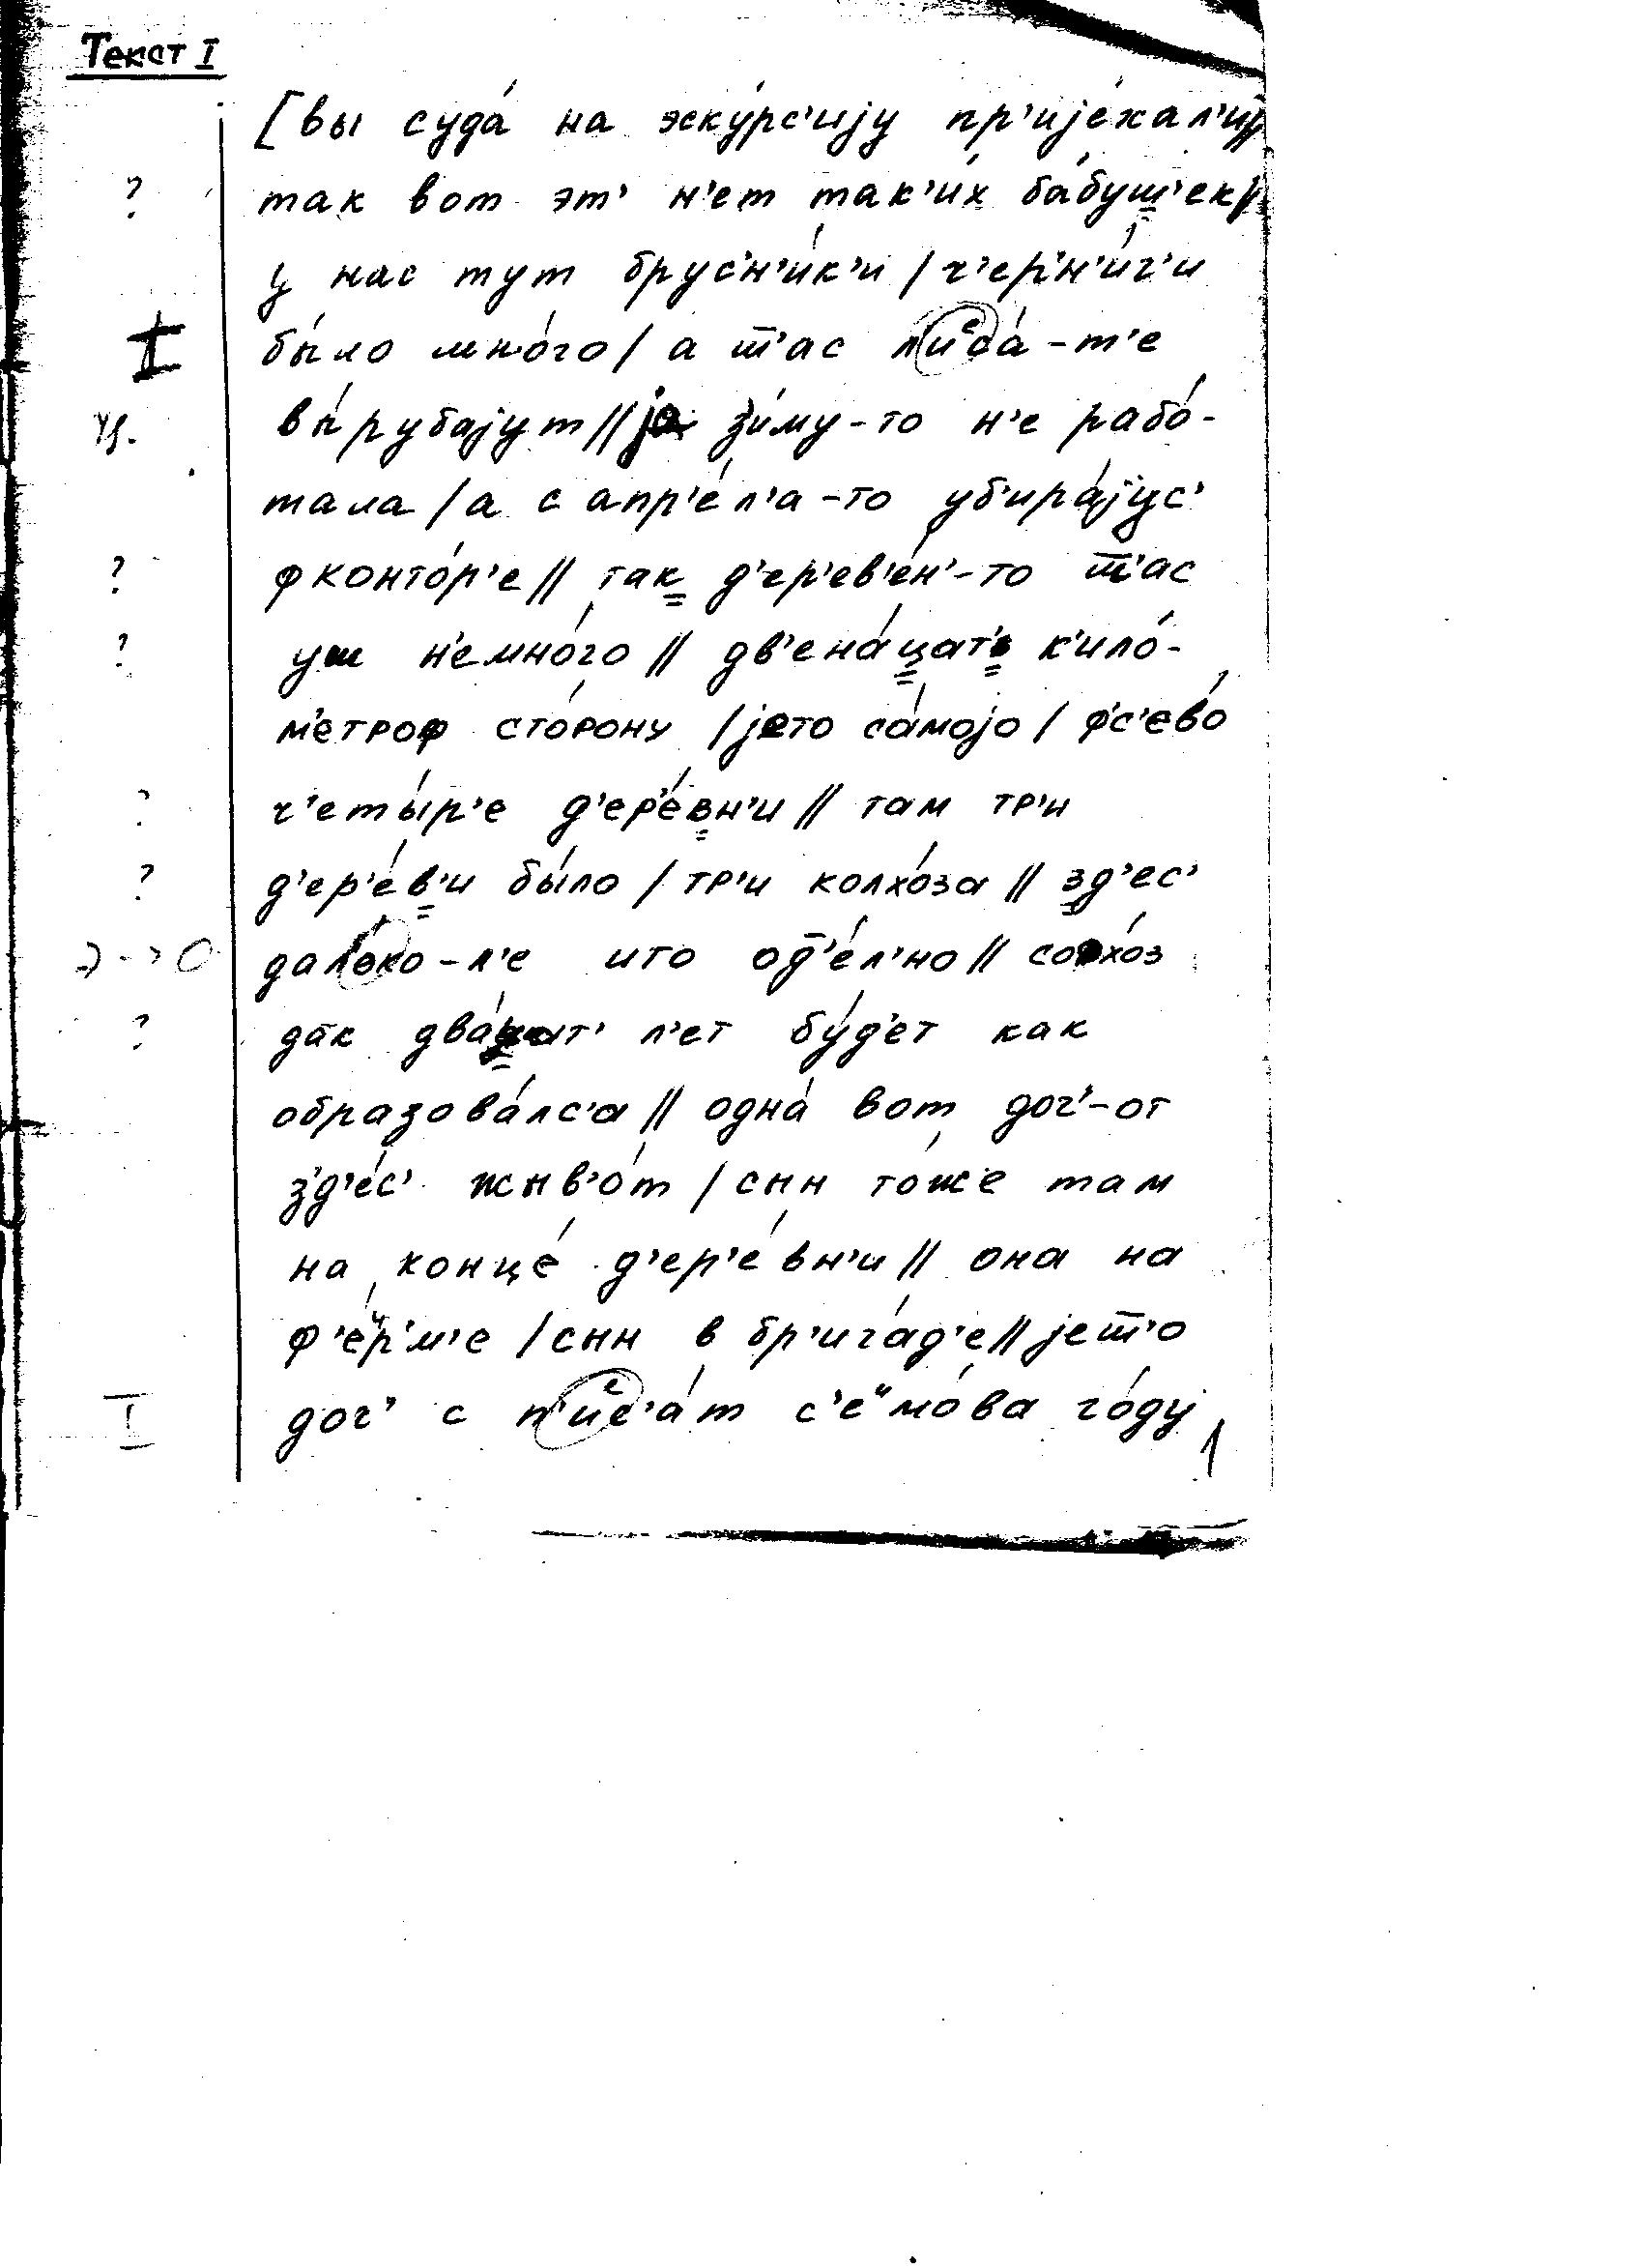 Текст I
[вы суда́ на эску́рс'ијy пр'ијéхал'и//
? так вот эт' н'ет так'и́х ба́буш'ек//
у нас тут брус'н'и́к'и / ч'ер'н'и́г'и
I бы́ло мно́го / а т̅'ас л'иеса́-т'е
вы́рубајут // ја зи́му-то н'е рабо́-
тала / а с апр'е́л'а-то уб'ира́јус'
? ф конто́р'е // так д'ер'ев'е́н'-то т̅'ас
? уш н'емно́го // дв'ена́цат'ь к'ило́-
м'етроф сто́рону / јето са́мојо / ф'с'ево́
? ч'еты́р'е д'ер'е́вн'и // там тр'и
? д'ер'е́в'и бы́ло / тр'и колхо́за // зд'ес'
э --> о дал'око-л'е ито од̅'е́л'но // совхо́з
? дак два́цат' л'ет бу́д'ет как
образова́лс'а // одна́ вот доч'-от
з'д'е́с' жыв'о́т / сын то́же там
на конце́ д'ер'е́вн'и // она на
ф'е́ир'м'е / сын в бр'ига́д'е // јет̅'о
I доч' с п'иес'а́т с'еимо́ва го́ду
1